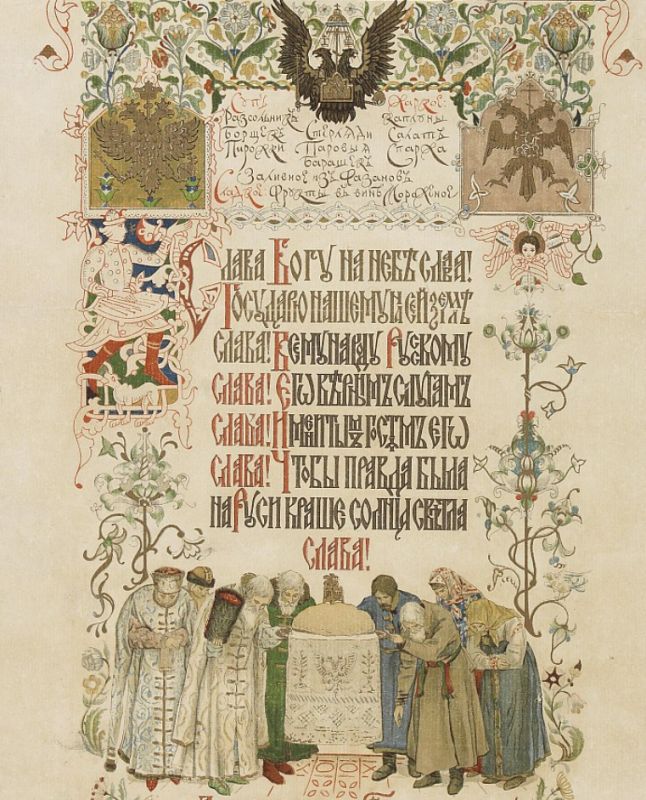 Супъ: Жаркое:
Разсольникъ Каплуны
Борщекъ Стерляди Салатъ
Пирожки Паровыя Спаржа
Барашекъ
Заливное изъ Фазановъ
Сладкое Фрукты въ винѣ Мороженое
Слава Богу на небѣ слава!
Государю нашему на сей землѣ
слава! Всему народу Русскому
слава! Егѡ вѣрнымъ слугамъ
слава! Именитымъ гостямъ егѡ
слава! Чтобы правда была
на Руси краше солнца свѣтла
слава!